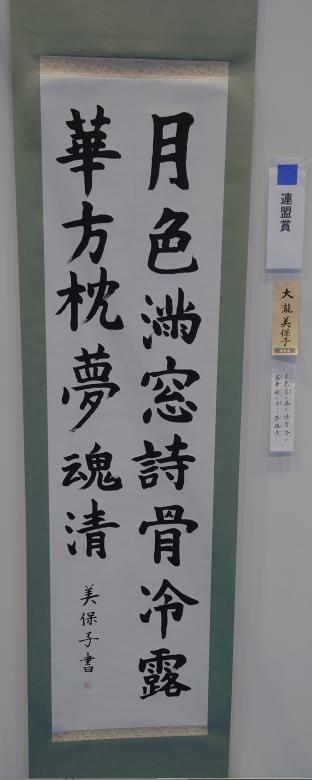 月色滿窓詩骨冷露
華方枕夢魂清
美保子書
連盟賞
大瀧美保子